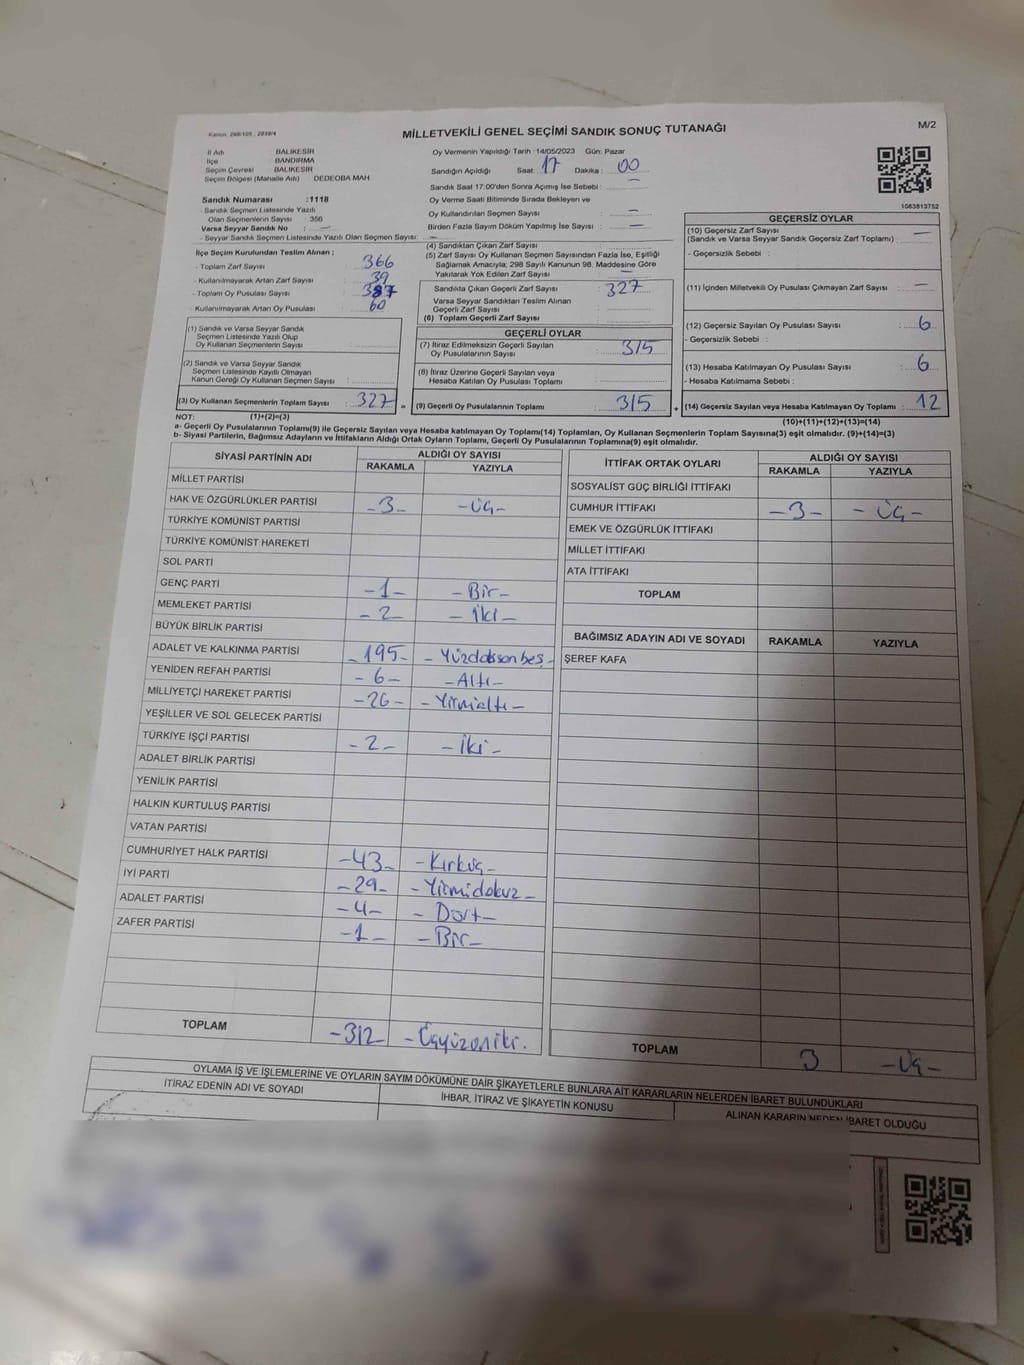 Kanun: 298/105 , 2839/4
MİLLETVEKİLİ GENEL SEÇİMİ SANDIK SONUÇ TUTANAĞI
M/2
İl Adı BALIKESİR
İlçe BANDIRMA
Seçim Çevresi BALIKESİR
Seçim Bölgesi (Mahalle Adı) DEDEOBA MAH
Sandık Numarası :1118
- Sandık Seçmen Listesinde Yazılı
Olan Seçmenlerin Sayısı : 356
Varsa Seyyar Sandık No : —
- Seyyar Sandık Seçmen Listesinde Yazılı Olan Seçmen Sayısı: —
Oy Vermenin Yapıldığı Tarih : 14/05/2023 Gün: Pazar
Sandığın Açıldığı Saat: 17 Dakika : 00
Sandık Saat 17:00'den Sonra Açımış İse Sebebi : —
Oy Verme Saati Bitiminde Sırada Bekleyen ve
Oy Kullandırılan Seçmen Sayısı : —
Birden Fazla Sayım Döküm Yapılmış İse Sayısı : —
1083813752
İlçe Seçim Kurulundan Teslim Alınan ;
- Toplam Zarf Sayısı 366
- Kullanılmayarak Artan Zarf Sayısı 39
- Toplam Oy Pusulası Sayısı 387
- Kullanılmayarak Artan Oy Pusulası 60
(1) Sandık ve Varsa Seyyar Sandık
Seçmen Listesinde Yazılı Olup
Oy Kullanan Seçmenlerin Sayısı :
(2) Sandık ve Varsa Seyyar Sandık
Seçmen Listesinde Kayıtlı Olmayan
Kanun Gereği Oy Kullanan Seçmen Sayısı :
(3) Oy Kullanan Seçmenlerin Toplam Sayısı : 327 =
(4) Sandıktan Çıkan Zarf Sayısı :
(5) Zarf Sayısı Oy Kullanan Seçmen Sayısından Fazla İse, Eşitliği
Sağlamak Amacıyla; 298 Sayılı Kanunun 98. Maddesine Göre
Yakılarak Yok Edilen Zarf Sayısı : —
Sandıkta Çıkan Geçerli Zarf Sayısı : 327
Varsa Seyyar Sandıktan Teslim Alınan
Geçerli Zarf Sayısı :
(6) Toplam Geçerli Zarf Sayısı :
GEÇERLİ OYLAR
(7) İtiraz Edilmeksizin Geçerli Sayılan
Oy Pusulalarının Sayısı : 315
(8) İtiraz Üzerine Geçerli Sayılan veya
Hesaba Katılan Oy Pusulası Toplamı :
(9) Geçerli Oy Pusulalarının Toplamı : 315 +
GEÇERSİZ OYLAR
(10) Geçersiz Zarf Sayısı
(Sandık ve Varsa Seyyar Sandık Geçersiz Zarf Toplamı) : —
- Geçersizlik Sebebi :
(11) İçinden Milletvekili Oy Pusulası Çıkmayan Zarf Sayısı : —
(12) Geçersiz Sayılan Oy Pusulası Sayısı : 6
- Geçersizlik Sebebi :
(13) Hesaba Katılmayan Oy Pusulası Sayısı : 6
- Hesaba Katılmama Sebebi :
(14) Geçersiz Sayılan veya Hesaba Katılmayan Oy Toplamı : 12
(10)+(11)+(12)+(13)=(14)
NOT: (1)+(2)=(3)
a- Geçerli Oy Pusulalarının Toplamı(9) ile Geçersiz Sayılan veya Hesaba katılmayan Oy Toplamı(14) Toplamları, Oy Kullanan Seçmenlerin Toplam Sayısına(3) eşit olmalıdır. (9)+(14)=(3)
b- Siyasi Partilerin, Bağımsız Adayların ve İttifakların Aldığı Ortak Oyların Toplamı, Geçerli Oy Pusulalarının Toplamına(9) eşit olmalıdır.
SİYASİ PARTİNİN ADI
ALDIĞI OY SAYISI
RAKAMLA YAZIYLA
MİLLET PARTİSİ
HAK VE ÖZGÜRLÜKLER PARTİSİ -3- -Üç-
TÜRKİYE KOMÜNİST PARTİSİ
TÜRKİYE KOMÜNİST HAREKETİ
SOL PARTİ
GENÇ PARTİ -1- -Bir-
MEMLEKET PARTİSİ -2- -İki-
BÜYÜK BİRLİK PARTİSİ
ADALET VE KALKINMA PARTİSİ -195- -Yüzdoksonbeş-
YENİDEN REFAH PARTİSİ -6- -Altı-
MİLLİYETÇİ HAREKET PARTİSİ -26- -Yirmialtı-
YEŞİLLER VE SOL GELECEK PARTİSİ
TÜRKİYE İŞÇİ PARTİSİ -2- -İki-
ADALET BİRLİK PARTİSİ
YENİLİK PARTİSİ
HALKIN KURTULUŞ PARTİSİ
VATAN PARTİSİ
CUMHURİYET HALK PARTİSİ -43- -Kırküç-
İYİ PARTİ -29- -Yirmidokuz-
ADALET PARTİSİ -4- -Dört-
ZAFER PARTİSİ -1- -Bir-
TOPLAM -312- -Üçyüzoniki.
İTTİFAK ORTAK OYLARI
ALDIĞI OY SAYISI
RAKAMLA YAZIYLA
SOSYALİST GÜÇ BİRLİĞİ İTTİFAKI
CUMHUR İTTİFAKI -3- -Üç-
EMEK VE ÖZGÜRLÜK İTTİFAKI
MİLLET İTTİFAKI
ATA İTTİFAKI
TOPLAM
BAĞIMSIZ ADAYIN ADI VE SOYADI RAKAMLA YAZIYLA
ŞEREF KAFA
TOPLAM 3 -Üç-
OYLAMA İŞ VE İŞLEMLERİNE VE OYLARIN SAYIM DÖKÜMÜNE DAİR ŞİKAYETLERLE BUNLARA AİT KARARLARIN NELERDEN İBARET BULUNDUKLARI
İTİRAZ EDENİN ADI VE SOYADI
İHBAR, İTİRAZ VE ŞİKAYETİN KONUSU
ALINAN KARARIN NEDEN İBARET OLDUĞU